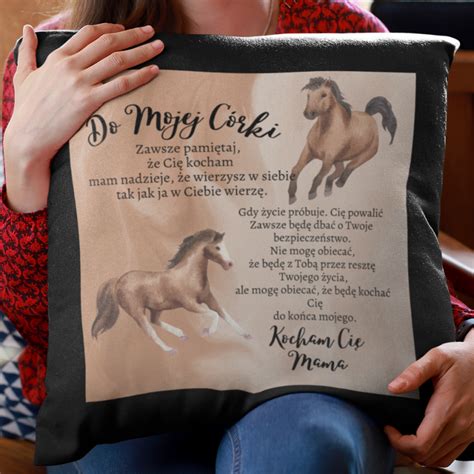 Do Mojej Córki
Zawsze pamiętaj,
że Cię kocham
mam nadzieje, że wierzysz w siebie
tak jak ja w Ciebie wierzę.
Gdy życie próbuje. Cię powalić
Zawsze będę dbać o Twoje
bezpieczeństwo.
Nie mogę obiecać,
że będę z Tobą przez resztę
Twojego życia,
ale mogę obiecać, że będę kochać
Cię
do końca mojego.
Kocham Cię
Mama